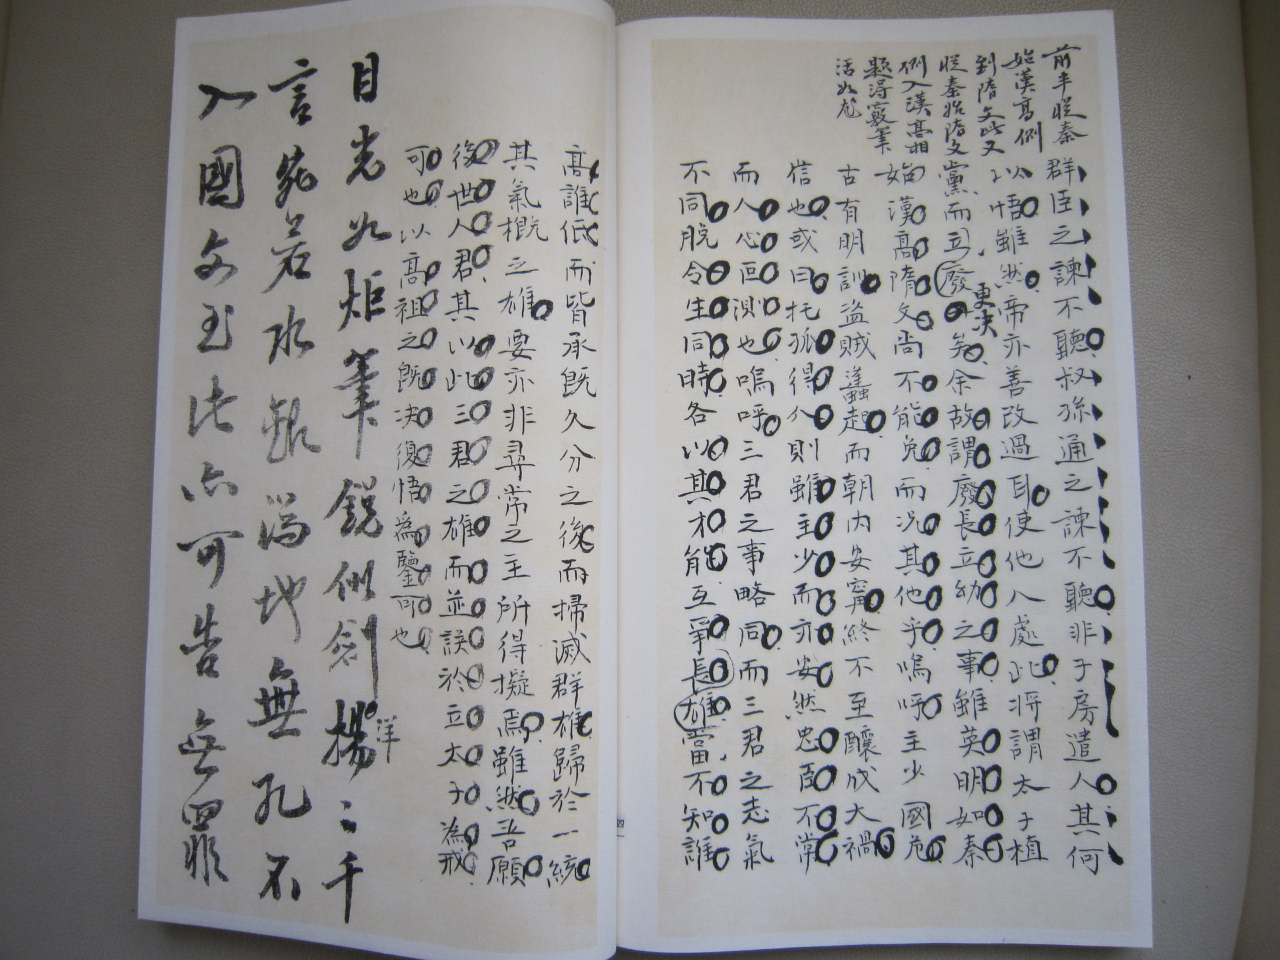 前半從秦
始漢高側
到隋文此又
從秦始隋文
側入漢高相
題得竅筆
活如龙
群臣之諫不聽叔孫通之諫不聽非子房遣人其何
以悟雖然帝亦善改過耳使他人處此將謂太子植
黨而立廢矣余故謂廢長立幼之事雖英明如秦
更决
始漢高隋文尚不能免而況其他乎嗚呼主少國危
古有明訓盜賊蠭起而朝内安甯終不至釀成大禍
信也或曰托孤得人則雖主少而亦安然忠臣不常
而人心叵測也嗚呼三君之事略同而三君之志氣
不同脱令生同時各以其才能互爭長雄當不知誰
高誰低而皆承既久分之後而掃滅群雄歸於一統
其氣概之雄要亦非尋常之主所得擬焉雖然吾願
後世人君其以此三君之雄而並誤於立太子為戒
可也以高祖之既决復悟為鑒可也
目光如炬筆鋭似劍揚二千
洋
言宛若水銀瀉地無孔不
入國文至此亦可告無罪